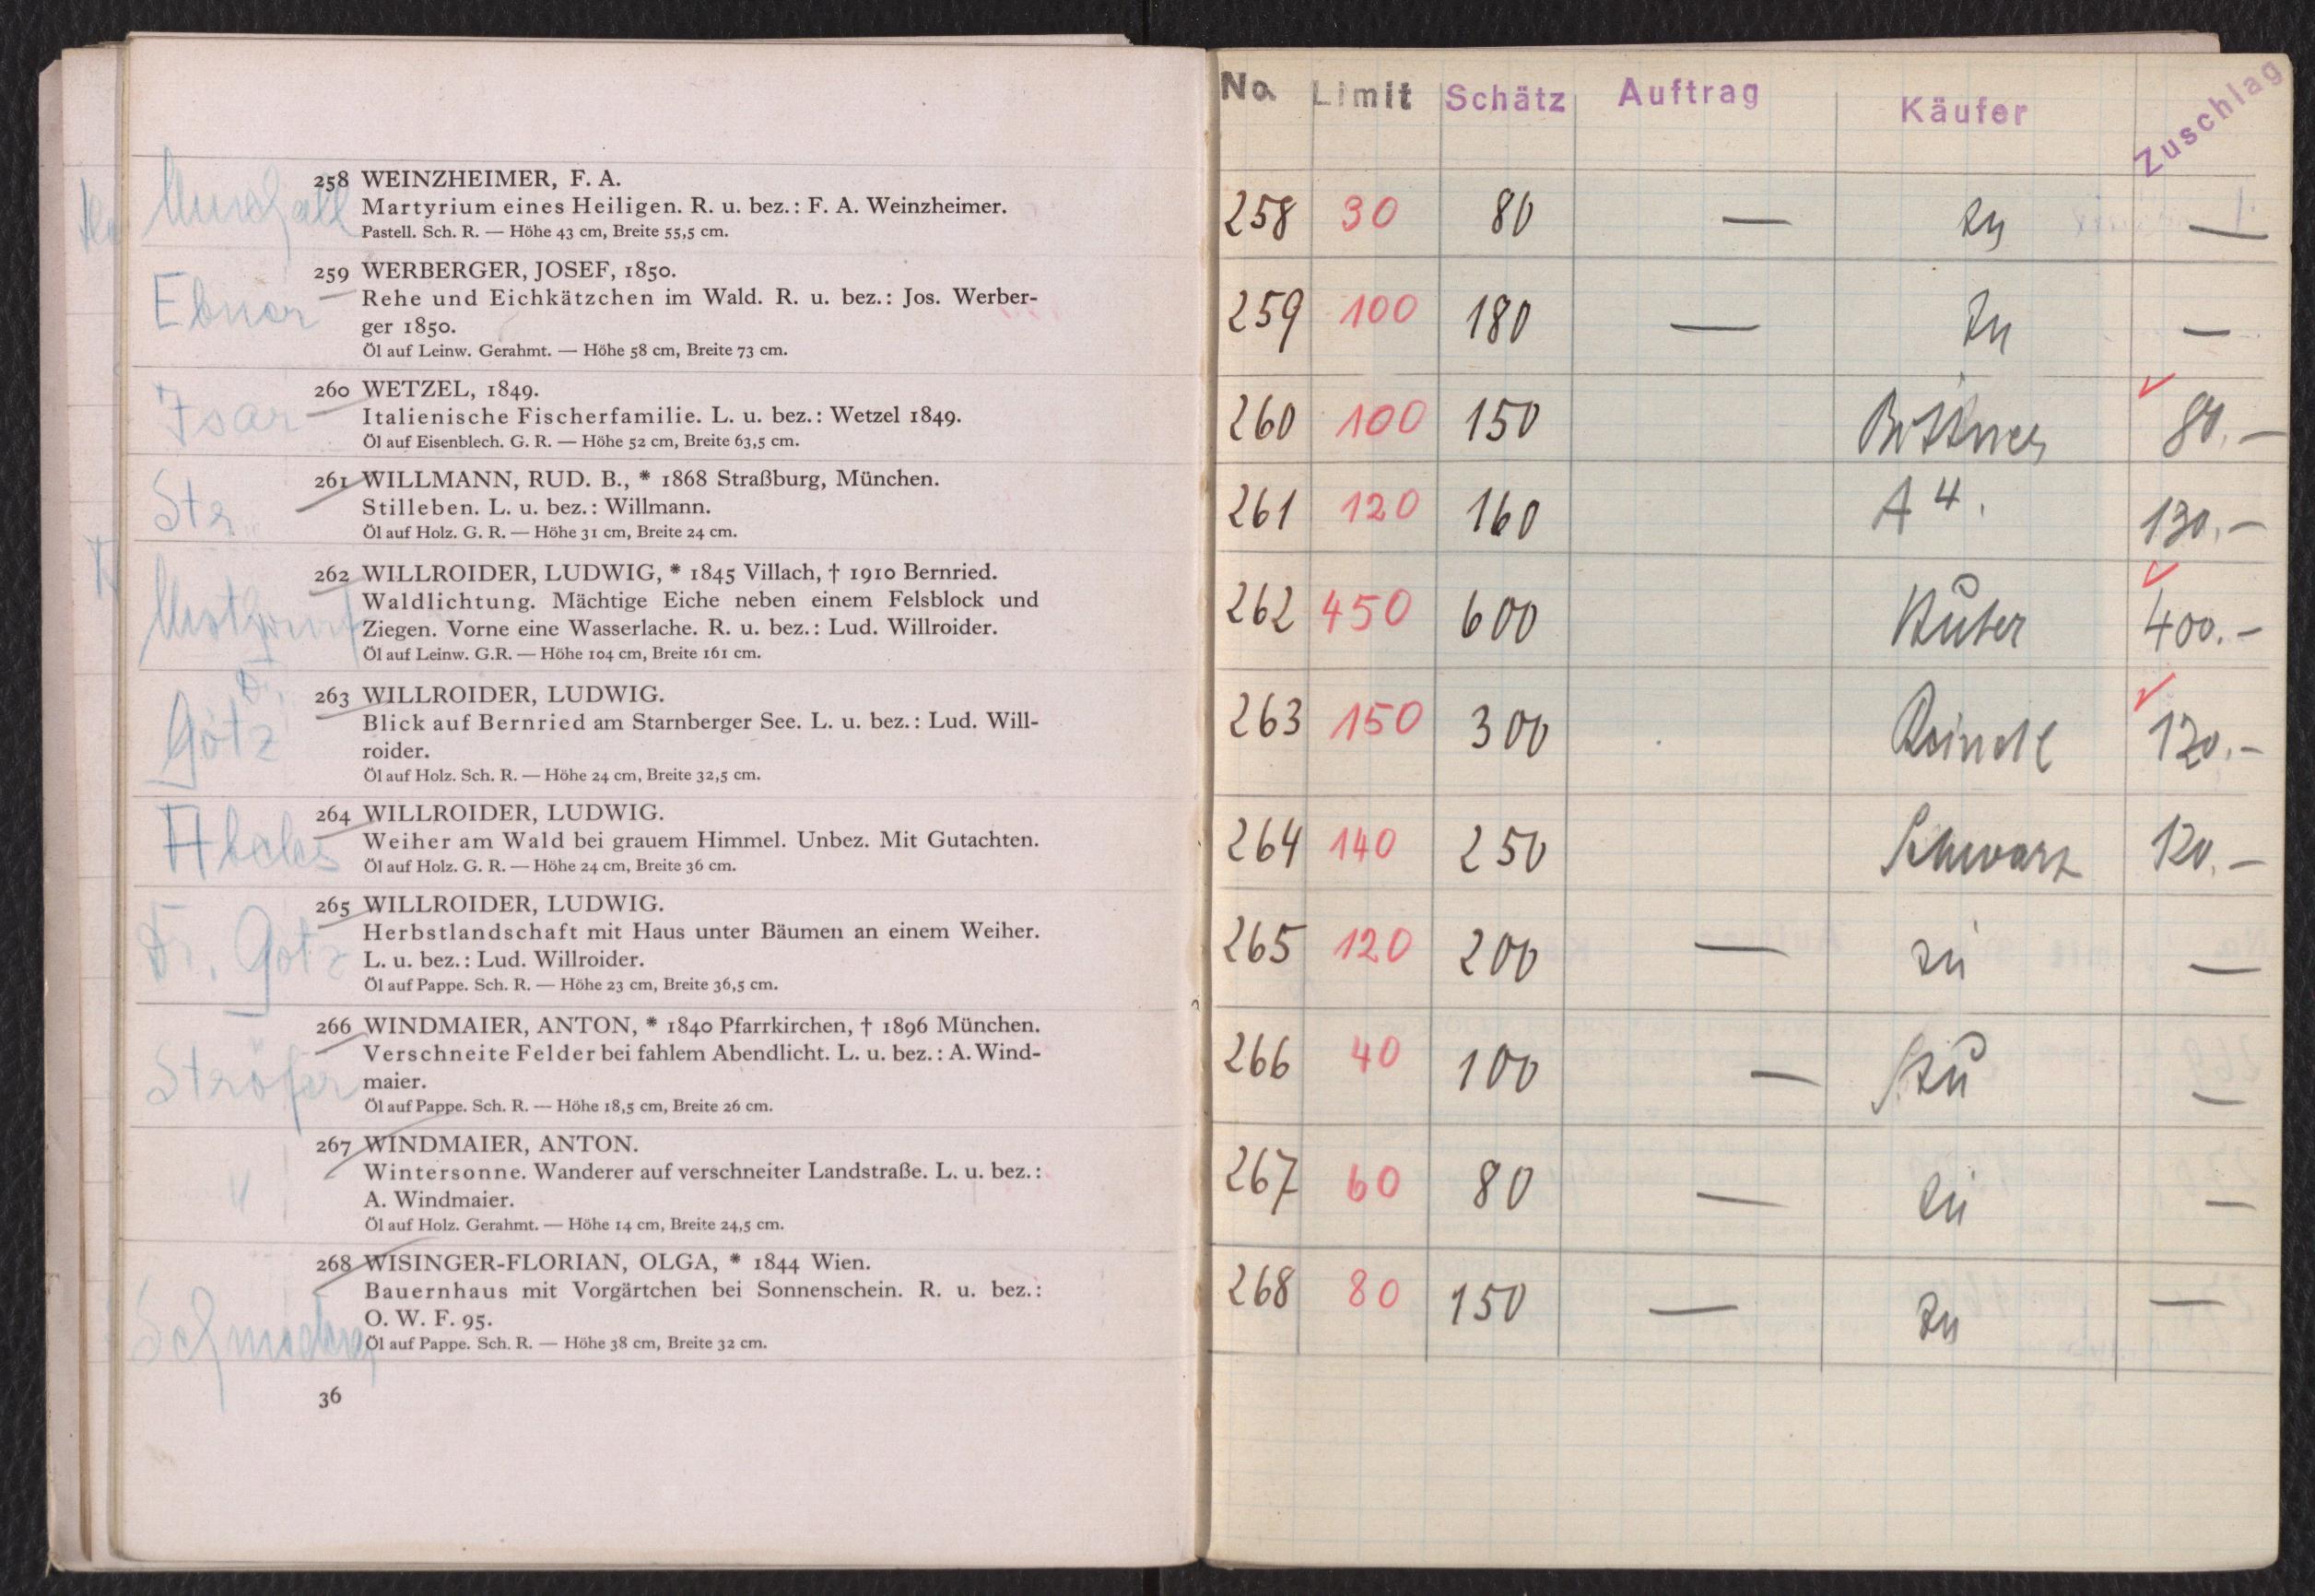 258 WEINZHEIMER, F. A.
Martyrium eines Heiligen. R. u. bez.: F. A. Weinzheimer.
Pastell. Sch. R. — Höhe 43 cm, Breite 55,5 cm.
Ebner
259 WERBERGER, JOSEF, 1850.
Rehe und Eichkätzchen im Wald. R. u. bez.: Jos. Werber-
ger 1850.
Öl auf Leinw. Gerahmt. — Höhe 58 cm, Breite 73 cm.
Isar
260 WETZEL, 1849.
Italienische Fischerfamilie. L. u. bez.: Wetzel 1849.
Öl auf Eisenblech. G. R. — Höhe 52 cm, Breite 63,5 cm.
Str.
261 WILLMANN, RUD. B., * 1868 Straßburg, München.
Stilleben. L. u. bez.: Willmann.
Öl auf Holz. G. R. — Höhe 31 cm, Breite 24 cm.
262 WILLROIDER, LUDWIG, * 1845 Villach, † 1910 Bernried.
Waldlichtung. Mächtige Eiche neben einem Felsblock und
Ziegen. Vorne eine Wasserlache. R. u. bez.: Lud. Willroider.
Öl auf Leinw. G.R. — Höhe 104 cm, Breite 161 cm.
Dr.
Götz
263 WILLROIDER, LUDWIG.
Blick auf Bernried am Starnberger See. L. u. bez.: Lud. Will-
roider.
Öl auf Holz. Sch. R. — Höhe 24 cm, Breite 32,5 cm.
264 WILLROIDER, LUDWIG.
Weiher am Wald bei grauem Himmel. Unbez. Mit Gutachten.
Öl auf Holz. G. R. — Höhe 24 cm, Breite 36 cm.
Dr. Götz
265 WILLROIDER, LUDWIG.
Herbstlandschaft mit Haus unter Bäumen an einem Weiher.
L. u. bez.: Lud. Willroider.
Öl auf Pappe. Sch. R. — Höhe 23 cm, Breite 36,5 cm.
Ströfer
266 WINDMAIER, ANTON, * 1840 Pfarrkirchen, † 1896 München.
Verschneite Felder bei fahlem Abendlicht. L. u. bez.: A. Wind-
maier.
Öl auf Pappe. Sch. R. — Höhe 18,5 cm, Breite 26 cm.
"
267 WINDMAIER, ANTON.
Wintersonne. Wanderer auf verschneiter Landstraße. L. u. bez.:
A. Windmaier.
Öl auf Holz. Gerahmt. — Höhe 14 cm, Breite 24,5 cm.
268 WISINGER-FLORIAN, OLGA, * 1844 Wien.
Bauernhaus mit Vorgärtchen bei Sonnenschein. R. u. bez.:
O. W. F. 95.
Öl auf Pappe. Sch. R. — Höhe 38 cm, Breite 32 cm.
36
No Limit Schätz Auftrag Käufer Zuschlag
258 30 80 — zu —
259 100 180 — zu —
260 100 150 80.—
261 120 160 A 4. 130.—
262 450 600 Huber 400.—
263 150 300 Reindl 120.—
264 140 250 Schwarz 120.—
265 120 200 — zu —
266 40 100 — zu —
267 60 80 — zu —
268 80 150 — zu —